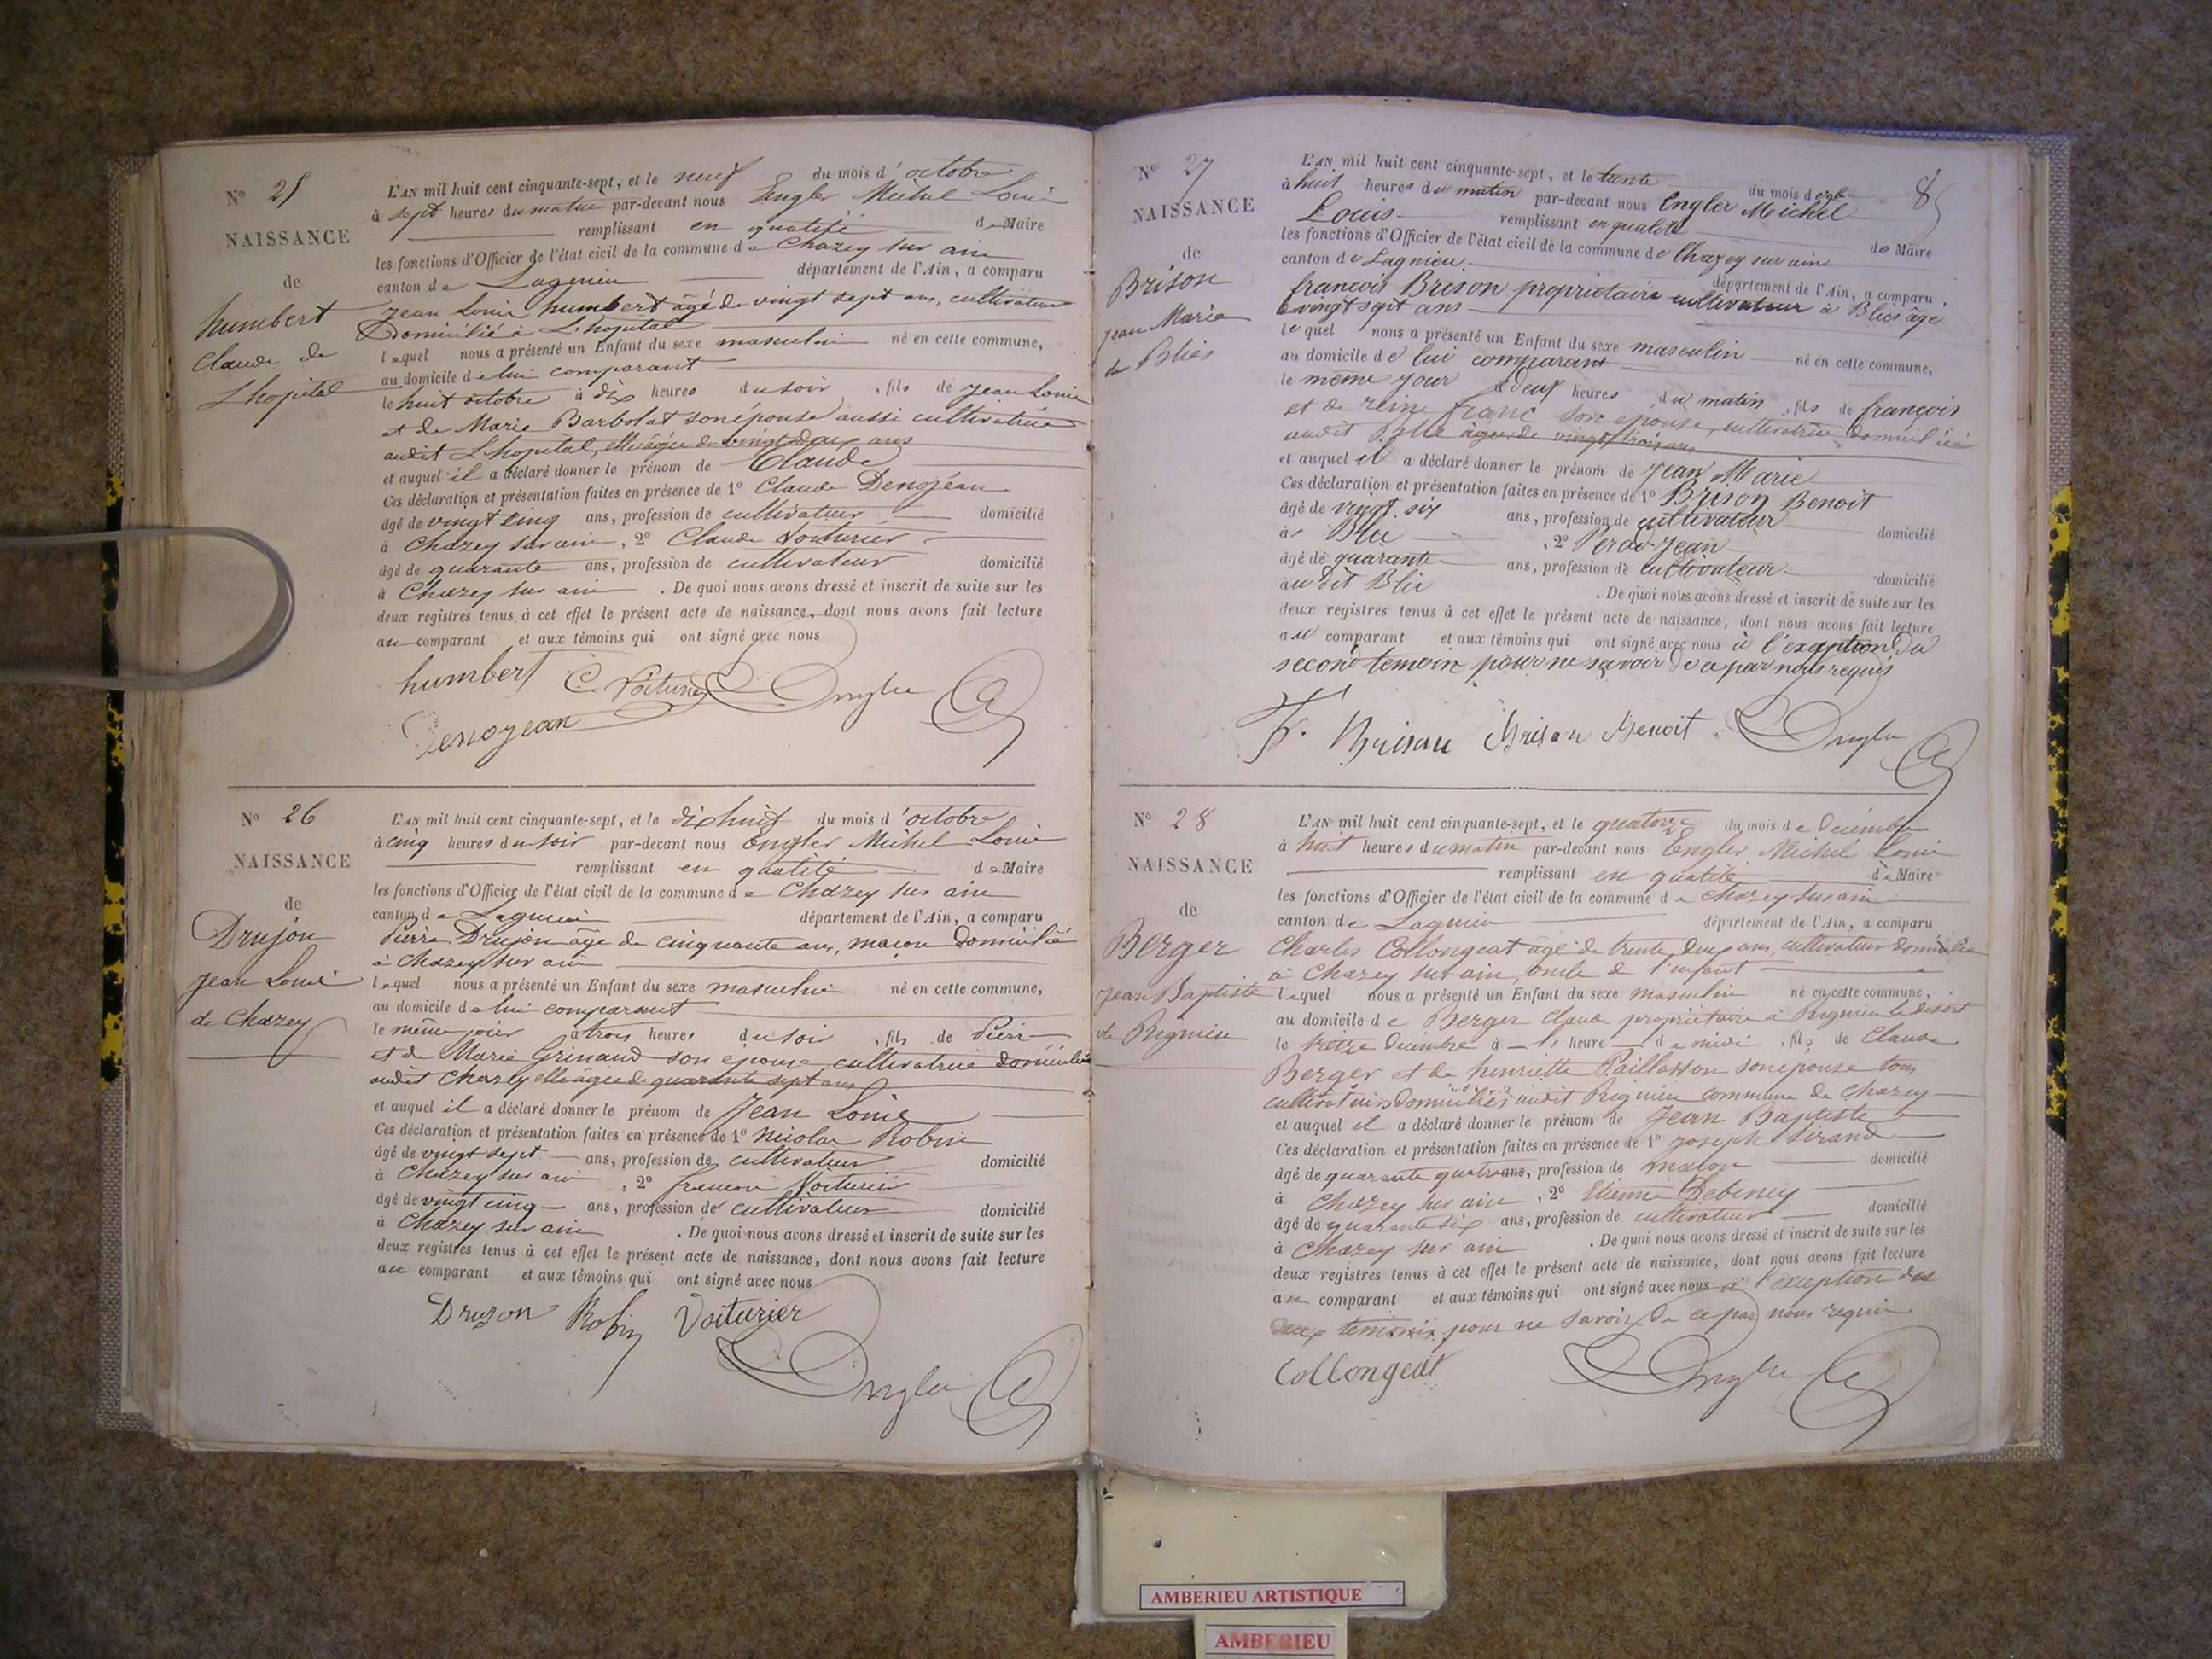 N° 25
NAISSANCE
de
humbert
Claude de
L'hopital
L'AN mil huit cent cinquante-sept, et le neuf du mois d'octobre
à sept heures du matin par-devant nous Engler Michel Louis
remplissant en qualité de Maire
les fonctions d'Officier de l'état civil de la commune de Chazey sur ain
canton de Lagnieu département de l'Ain, a comparu
Jean Louis humbert âgé de vingt sept ans, cultivateur
Domicilié à L'hopital
lequel nous a présenté un Enfant du sexe masculin né en cette commune,
au domicile de lui comparant
le huit octobre à dix heures du soir, fils de Jean Louis
et de Marie Barbolat son épouse aussi cultivatrice
audit L'hopital, elle âgée de vingt deux ans
et auquel il a déclaré donner le prénom de Claude
Ces déclaration et présentation faites en présence de 1° Claude Denojean
âgé de vingt cinq ans, profession de cultivateur domicilié
à Chazey sur ain, 2° Claude Voiturier
âgé de quarante ans, profession de cultivateur domicilié
à Chazey sur ain. De quoi nous avons dressé et inscrit de suite sur les
deux registres tenus à cet effet le présent acte de naissance, dont nous avons fait lecture
au comparant et aux témoins qui ont signé avec nous
humbert C. Voiturier Engler
Denojean
N° 26
NAISSANCE
de
Drujon
Jean Louis
de Chazey
L'AN mil huit cent cinquante-sept, et le dix huit du mois d'octobre
à cinq heures du soir par-devant nous Engler Michel Louis
remplissant en qualité de Maire
les fonctions d'Officier de l'état civil de la commune de Chazey sur ain
canton de Lagnieu département de l'Ain, a comparu
Pierre Drujon âgé de cinquante ans, maçon Domicilié
à Chazey sur ain
lequel nous a présenté un Enfant du sexe masculin né en cette commune,
au domicile de lui comparant
le même jour à trois heures du soir, fils de Pierre
et de Marie Grinand son épouse cultivatrice domiciliée
audit Chazey elle âgée de quarante sept ans
et auquel il a déclaré donner le prénom de Jean Louis
Ces déclaration et présentation faites en présence de 1° Nicolas Robin
âgé de vingt sept ans, profession de cultivateur domicilié
à Chazey sur ain, 2° françois Voiturier
âgé de vingt cinq ans, profession de cultivateur domicilié
à Chazey sur ain. De quoi nous avons dressé et inscrit de suite sur les
deux registres tenus à cet effet le présent acte de naissance, dont nous avons fait lecture
au comparant et aux témoins qui ont signé avec nous
Drujon Robin Voiturier
Engler
N° 27
NAISSANCE
de
Brison
jean Marie
de Blies
L'AN mil huit cent cinquante-sept, et le trente du mois d'
à huit heures du matin par-devant nous Engler Michel
Louis remplissant en qualité de Maire
les fonctions d'Officier de l'état civil de la commune de Chazey sur ain
canton de Lagnieu département de l'Ain, a comparu
francois Brison proprietaire cultivateur à Blies âgé
vingt sept ans
lequel nous a présenté un Enfant du sexe masculin né en cette commune,
au domicile de lui comparant
le même jour à deux heures du matin, fils de françois
et de reine franc son epouse, cultivatrice domiciliée
audit âgée de vingt trois ans
et auquel il a déclaré donner le prénom de Jean Marie
Ces déclaration et présentation faites en présence de 1° Brison Benoit
âgé de vingt six ans, profession de cultivateur domicilié
à Blie, 2° Jean
âgé de quarante ans, profession de cultivateur domicilié
au dit Blie. De quoi nous avons dressé et inscrit de suite sur les
deux registres tenus à cet effet le présent acte de naissance, dont nous avons fait lecture
au comparant et aux témoins qui ont signé avec nous à l'exception du
second temoin pour ne savoir de ce par nous requis
F. Brison Brison Benoit Engler
N° 28
NAISSANCE
de
Berger
Jean Baptiste
de Rignieu
L'AN mil huit cent cinquante-sept, et le quatorze du mois de Décembre
à huit heures du matin par-devant nous Engler Michel Louis
remplissant en qualité de Maire
les fonctions d'Officier de l'état civil de la commune de Chazey sur ain
canton de Lagnieu département de l'Ain, a comparu
Charles Collongeat âgé de trente deux ans, cultivateur domicilié
à Chazey sur ain, oncle de l'enfant
lequel nous a présenté un Enfant du sexe masculin né en cette commune,
au domicile de Berger Claude propriétaire à Rignieu le désert
le treize Décembre à heure de midi, fils de Claude
Berger et de henriette Paillasson son epouse tous
cultivateurs domiciliés audit Rignieu commune de Chazey
et auquel il a déclaré donner le prénom de Jean Baptiste
Ces déclaration et présentation faites en présence de 1° Joseph Sirand
âgé de quarante quatre ans, profession de maçon domicilié
à Chazey sur ain, 2° Etienne Debeney
âgé de quarante six ans, profession de cultivateur domicilié
à Chazey sur ain. De quoi nous avons dressé et inscrit de suite sur les
deux registres tenus à cet effet le présent acte de naissance, dont nous avons fait lecture
au comparant et aux témoins qui ont signé avec nous à l'exception des
deux temoins pour ne savoir de ce par nous requis
Collongeat Engler
AMBERIEU ARTISTIQUE
AMBERIEU